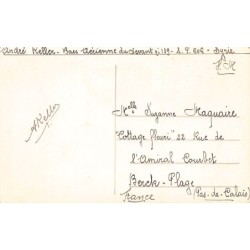 André Keller - Base Aérienne du Levant q. 139 - S. P. 606 - Syrie
F M
AKeller
Melle Suzanne Maquaire
"Cottage fleuri" 22 Rue de
l'Amiral Courbet
Berck-Plage
(Pas-de-Calais)
France